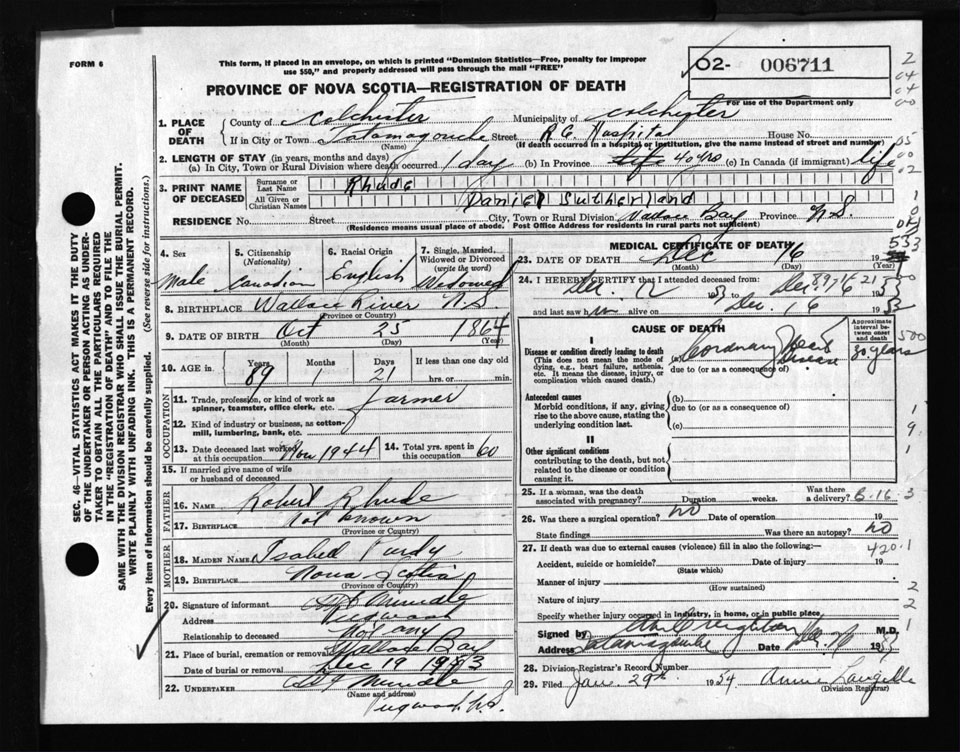 FORM 6
This form, if placed in an envelope, on which is printed "Dominion Statistics—Free, penalty for improper
use $50," and properly addressed will pass through the mail "FREE"
O2- 006711
For use of the Department only
PROVINCE OF NOVA SCOTIA—REGISTRATION OF DEATH
1. PLACE OF DEATH
County of Colchester Municipality of Colchester
If in City or Town Tatamagouche Street R.C. Hospital House No.
(Name) (If death occurred in a hospital or institution, give the name instead of street and number)
2. LENGTH OF STAY (in years, months and days)
(a) In City, Town or Rural Division where death occurred 1 day (b) In Province 40 yrs (c) In Canada (if immigrant) life
3. PRINT NAME OF DECEASED
Surname or Last Name Rhude
All Given or Christian Names Daniel Sutherland
RESIDENCE No. Street City, Town or Rural Division Wallace Bay Province N.S.
(Residence means usual place of abode. Post Office Address for residents in rural parts not sufficient)
4. Sex Male
5. Citizenship (Nationality) Canadian
6. Racial Origin English
7. Single, Married, Widowed or Divorced (write the word) Widowed
8. BIRTHPLACE Wallace River N.S.
(Province or Country)
9. DATE OF BIRTH Oct 25 1864
(Month) (Day) (Year)
10. AGE in Years 89 Months 1 Days 21 If less than one day old hrs. or min.
OCCUPATION
11. Trade, profession, or kind of work as spinner, teamster, office clerk, etc. Farmer
12. Kind of industry or business, as cotton-mill, lumbering, bank, etc.
13. Date deceased last worked at this occupation Nov 1944
14. Total yrs. spent in this occupation 60
15. If married give name of wife or husband of deceased
FATHER
16. Name Robert Rhude
17. Birthplace Not known
(Province or Country)
MOTHER
18. Maiden Name Isabell Purdy
19. Birthplace Nova Scotia
(Province or Country)
20. Signature of informant Mundle
Address Pugwash
Relationship to deceased Not any
21. Place of burial, cremation or removal Wallace Bay
Date of burial or removal Dec 19 1953
22. UNDERTAKER Mundle
(Name and address)
Pugwash N.S.
MEDICAL CERTIFICATE OF DEATH
23. DATE OF DEATH Dec 16
(Month) (Day) (Year)
24. I HEREBY CERTIFY that I attended deceased from:
Dec. 12 1953 to Dec. 16 1953
and last saw him alive on Dec. 6 1953
CAUSE OF DEATH
Approximate interval between onset and death
I
Disease or condition directly leading to death
(This does not mean the mode of dying, e.g., heart failure, asthenia, etc. It means the disease, injury, or complication which caused death.)
(a) Coronary Heart Disease 30 years
due to (or as a consequence of)
Antecedent causes
Morbid conditions, if any, giving rise to the above cause, stating the underlying condition last.
(b)
due to (or as a consequence of)
(c)
II
Other significant conditions
contributing to the death, but not related to the disease or condition causing it.
25. If a woman, was the death associated with pregnancy? Duration weeks. Was there a delivery?
26. Was there a surgical operation? no Date of operation 19
State findings Was there an autopsy? no
27. If death was due to external causes (violence) fill in also the following:—
Accident, suicide or homicide? Date of injury 19
(State which)
Manner of injury
(How sustained)
Nature of injury
Specify whether injury occurred in industry, in home, or in public place
Signed by Creighton M.D.
Address Tatamagouche Date Dec. 19
28. Division Registrar's Record Number
29. Filed Jan. 29th 1954 Annie Langille
(Division Registrar)
SEC. 46—VITAL STATISTICS ACT MAKES IT THE DUTY
OF THE UNDERTAKER OR PERSON ACTING AS UNDER-
TAKER TO OBTAIN ALL THE PARTICULARS REQUIRED
IN THE "REGISTRATION OF DEATH" AND TO FILE THE
SAME WITH THE DIVISION REGISTRAR WHO SHALL ISSUE THE BURIAL PERMIT.
WRITE PLAINLY WITH UNFADING INK. THIS IS A PERMANENT RECORD.
Every item of information should be carefully supplied. (See reverse side for instructions.)